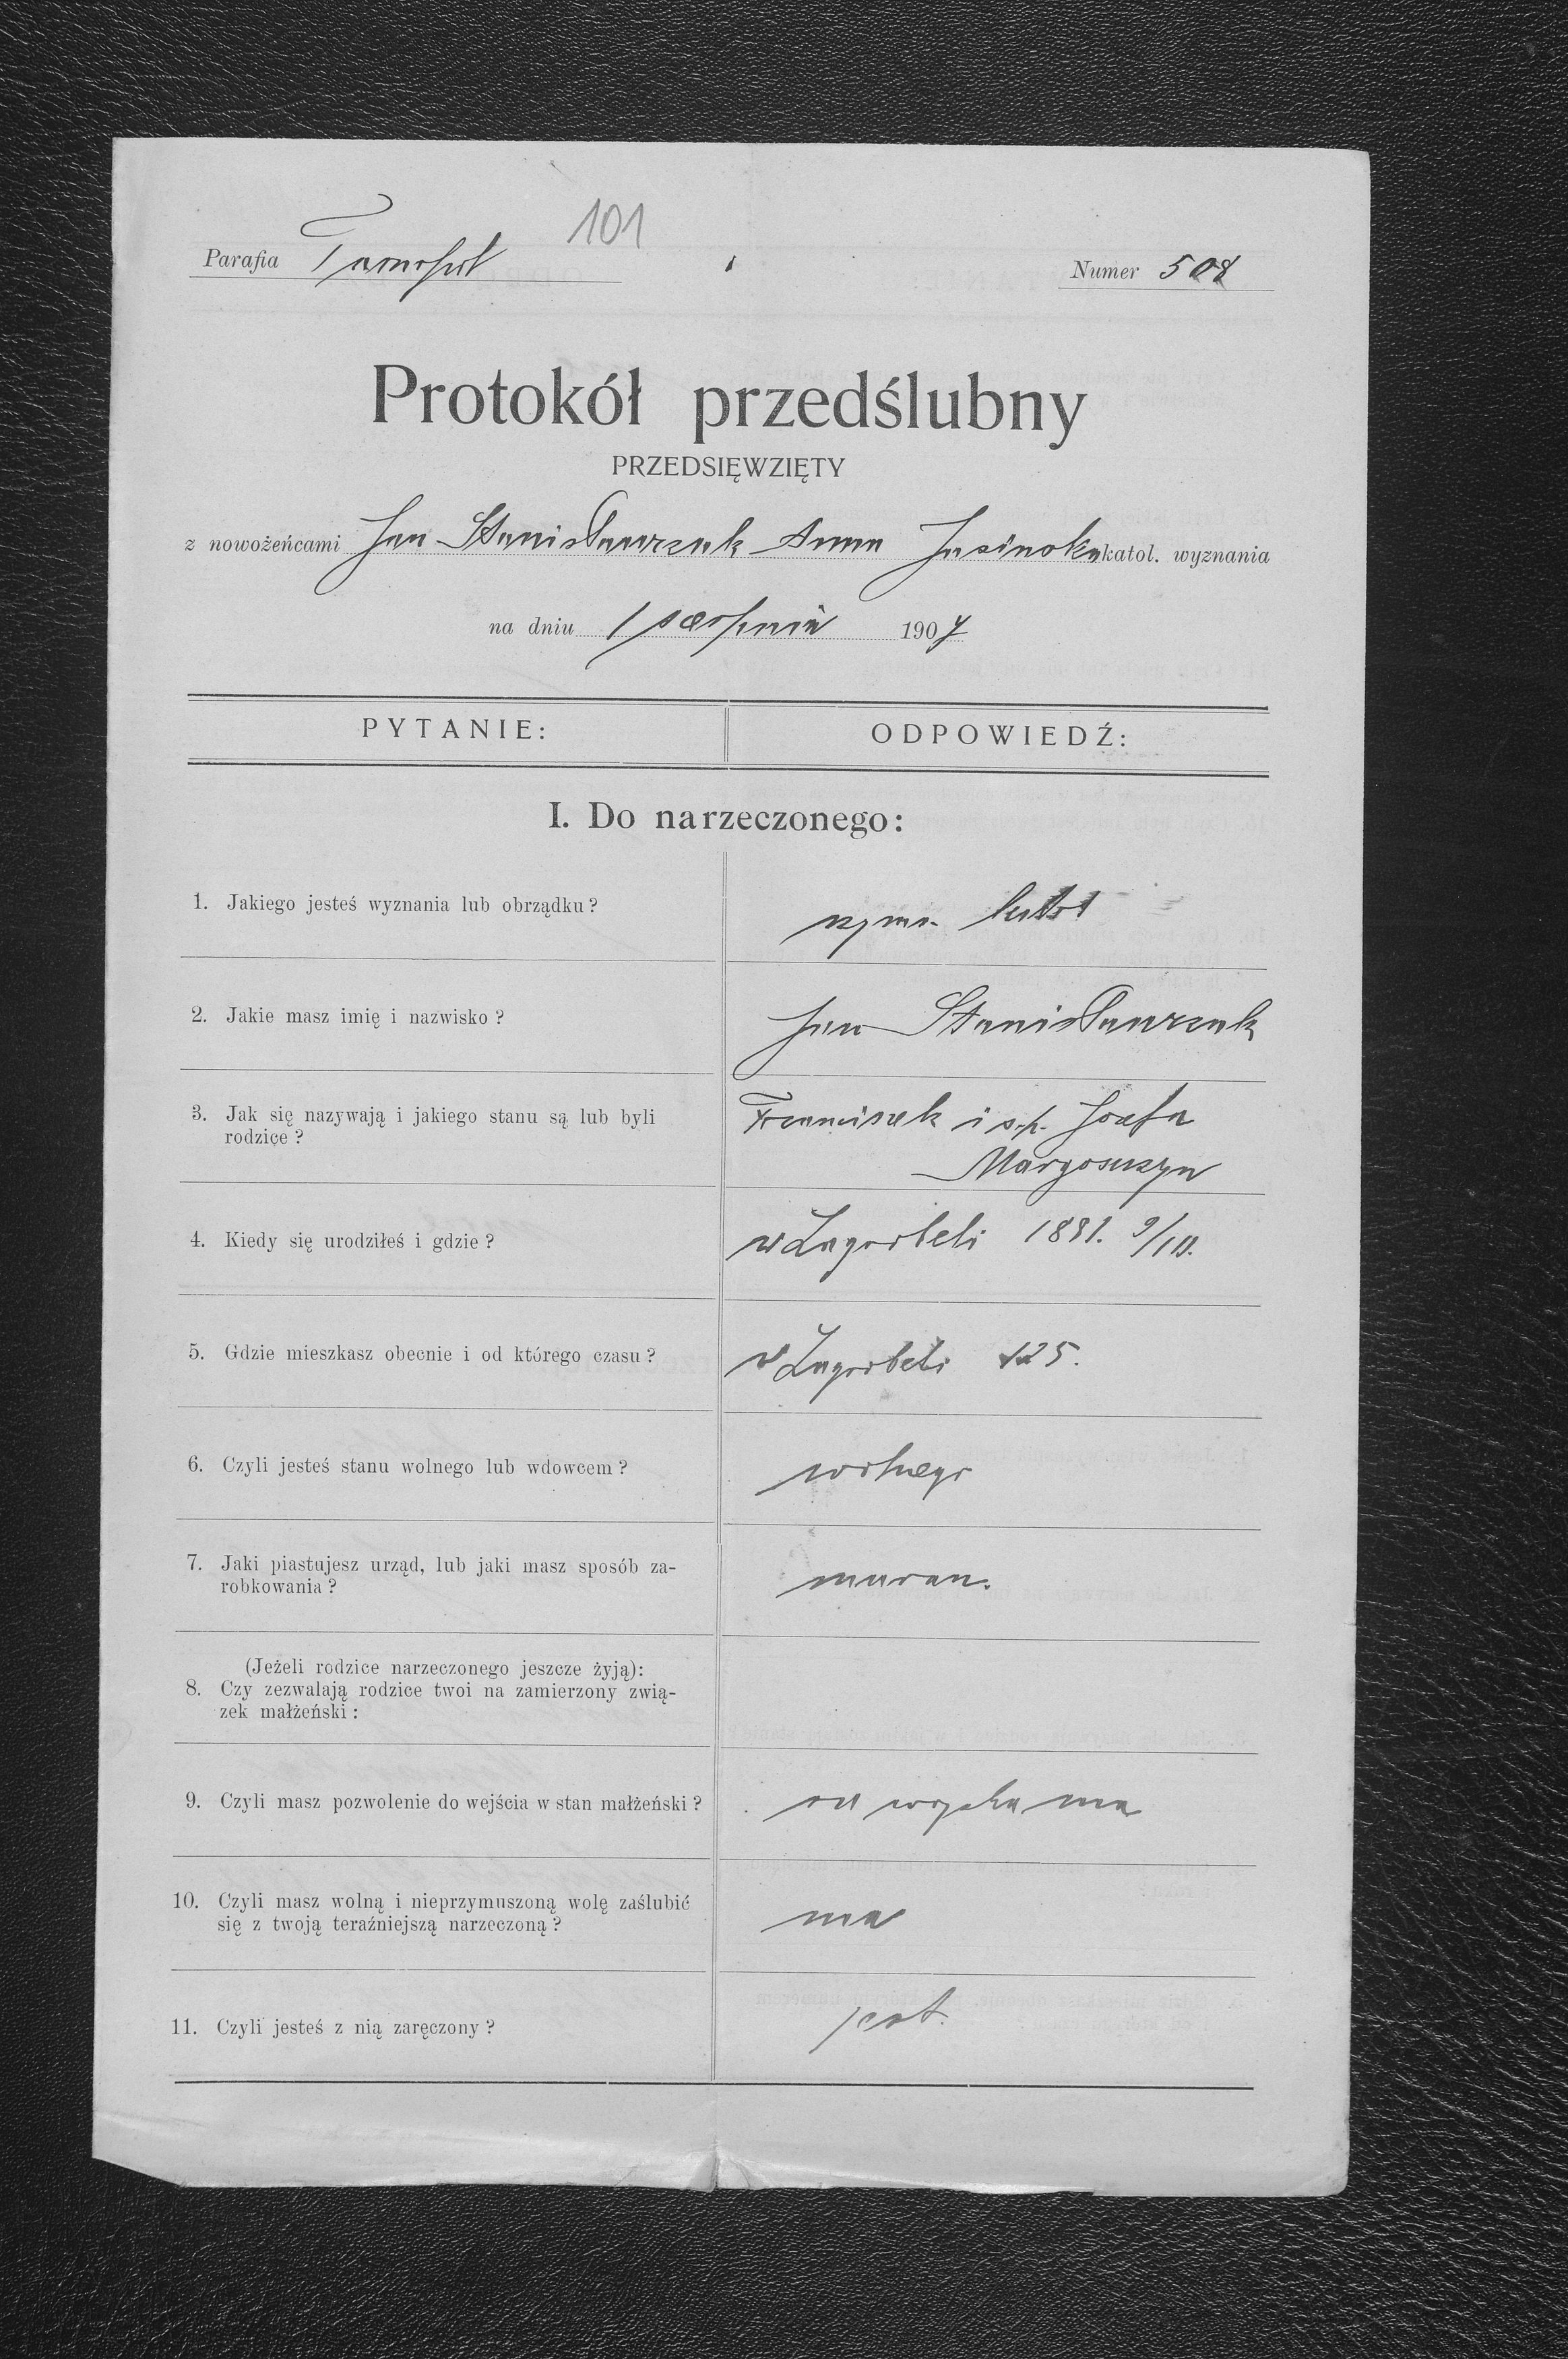 101
Parafia Numer 508
Protokół przedślubny
PRZEDSIĘWZIĘTY
z nowożeńcami Jan Stanisławczak Anna Jasinska katol. wyznania
na dniu 1 sierpnia 1907
PYTANIE: ODPOWIEDŹ:
I. Do narzeczonego:
1. Jakiego jesteś wyznania lub obrządku? rzym.
2. Jakie masz imię i nazwisko? Jan Stanisławczak
3. Jak się nazywają i jakiego stanu są lub byli Franciszek i s.p. Józefa
rodzice?
4. Kiedy się urodziłeś i gdzie? w Zagorbeli 1881. 9/III.
5. Gdzie mieszkasz obecnie i od którego czasu? w Zagorbeli 125.
6. Czyli jesteś stanu wolnego lub wdowcem? wolnego
7. Jaki piastujesz urząd, lub jaki masz sposób za-
robkowania? murarz.
(Jeżeli rodzice narzeczonego jeszcze żyją):
8. Czy zezwalają rodzice twoi na zamierzony zwią-
zek małżeński:
9. Czyli masz pozwolenie do wejścia w stan małżeński? ma
10. Czyli masz wolną i nieprzymuszoną wolę zaślubić
się z twoją teraźniejszą narzeczoną? ma
11. Czyli jesteś z nią zaręczony? jest.